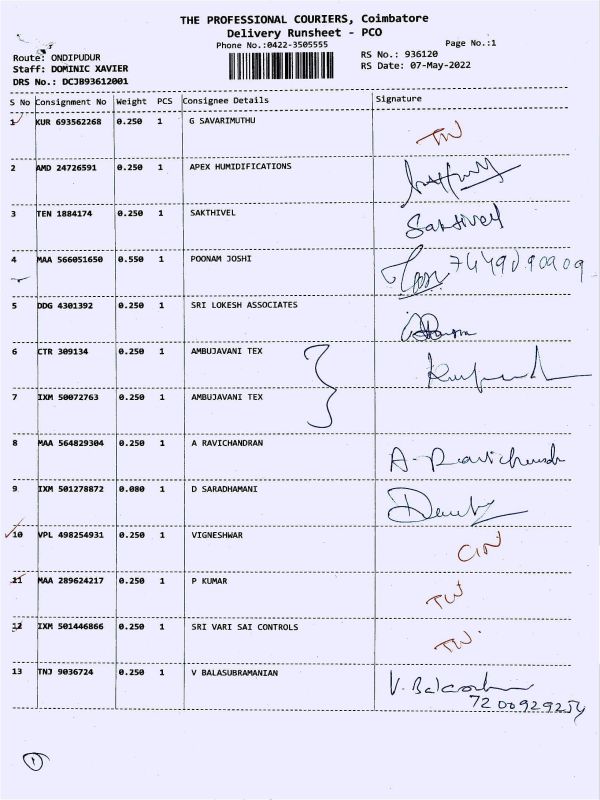 THE PROFESSIONAL COURIERS, Coimbatore
Delivery Runsheet - PCO
Phone No.:0422-3505555
Page No.:1
Route: ONDIPUDUR
RS No.: 936120
Staff: DOMINIC XAVIER
RS Date: 07-May-2022
DRS No.: DCJB93612001
S No Consignment No Weight PCS Consignee Details Signature
1 KUR 693562268 0.250 1 G SAVARIMUTHU
2 AMD 24726591 0.250 1 APEX HUMIDIFICATIONS
3 TEN 1884174 0.250 1 SAKTHIVEL Sakthivel
4 MAA 566051650 0.550 1 POONAM JOSHI
5 DDG 4301392 0.250 1 SRI LOKESH ASSOCIATES
6 CTR 309134 0.250 1 AMBUJAVANI TEX
7 IXM 50072763 0.250 1 AMBUJAVANI TEX
8 MAA 564829304 0.250 1 A RAVICHANDRAN A-Ravichandr
9 IXM 501278872 0.080 1 D SARADHAMANI
10 VPL 498254931 0.250 1 VIGNESHWAR
11 MAA 289624217 0.250 1 P KUMAR
12 IXM 501446866 0.250 1 SRI VARI SAI CONTROLS
13 TNJ 9036724 0.250 1 V BALASUBRAMANIAN
7200929254
1